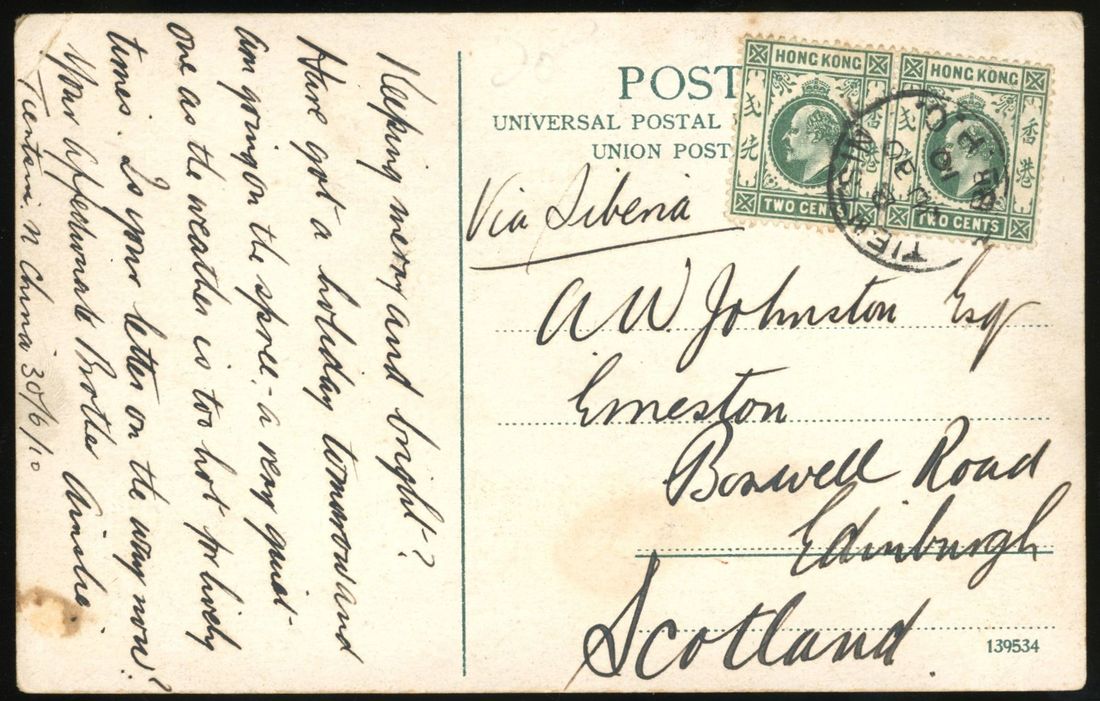 Keeping merry and bright?
Have got a holiday tomorrow and
am going on the spree - a very quiet
one as the weather is too hot for lively
times. Is your letter on the way now?
Your affectionate Brother Ainslie.
Tientsin N China 30/6/10
POST
UNIVERSAL POSTAL
UNION POST
HONG KONG
香港
TWO CENTS
HONG KONG
香港
TWO CENTS
TIENTSIN
BR. P.O.
JU 30
10
Via Siberia
A W. Johnston Esq
Erneston
Boswell Road
Edinburgh
Scotland.
139534